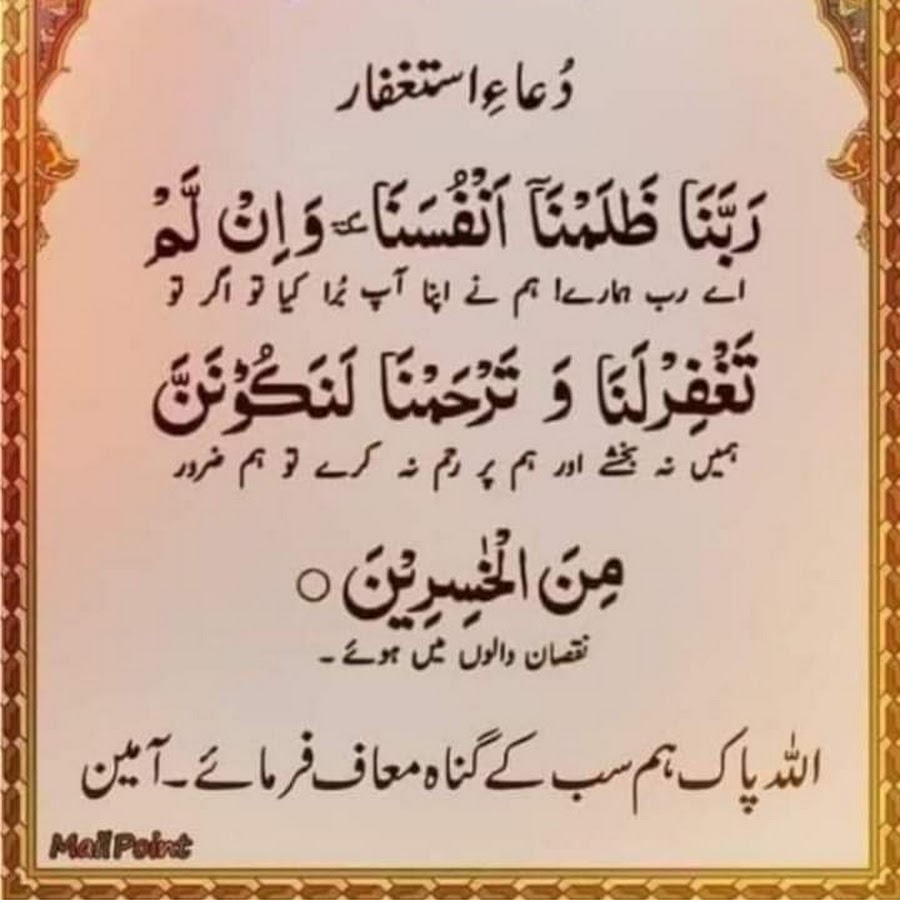 دُعاءِ استغفار
رَبَّنَا ظَلَمْنَآ اَنْفُسَنَا ٚ وَ اِنْ لَّمْ
اے رب ہمارے! ہم نے اپنا آپ بُرا کیا تو اگر تو
تَغْفِرْلَنَا وَ تَرْحَمْنَا لَنَكُوْنَنَّ
ہمیں نہ بخشے اور ہم پر رحم نہ کرے تو ہم ضرور
مِنَ الْخٰسِرِيْنَ ○
نقصان والوں میں ہوئے ۔
اللہ پاک ہم سب کے گناہ معاف فرمائے ۔ آمین
Mail Point